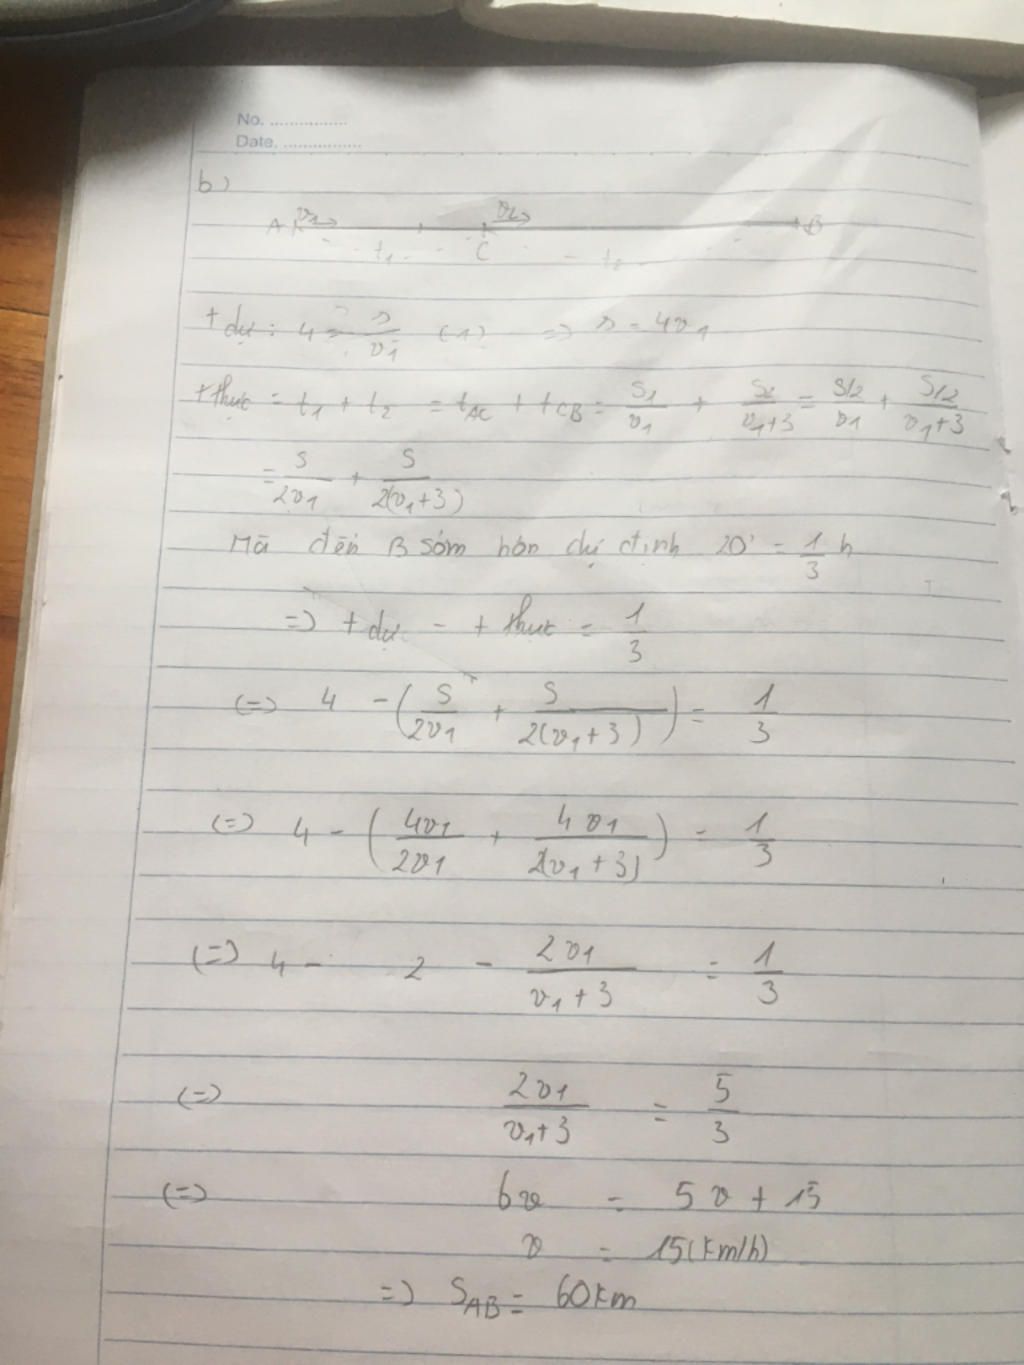 No. ................
Date. ................
b)
A v₁→ v₂→ B
t₁ C t₂
t dự : 4 = s/v₁ (1) => s = 4v₁
t thực = t₁ + t₂ = t_AC + t_CB = S₁/v₁ + S₂/(v₁+3) = S/2/v₁ + S/2/(v₁+3)
= S/2v₁ + S/2(v₁+3)
Mà đến B sớm hơn dự định 20' = 1/3 h
=> t dự - t thực = 1/3
(=) 4 - (S/2v₁ + S/2(v₁+3)) = 1/3
(=) 4 - (4v₁/2v₁ + 4v₁/2(v₁+3)) = 1/3
(=) 4 - 2 - 2v₁/(v₁+3) = 1/3
(=) 2v₁/(v₁+3) = 5/3
(=) 6v = 5v + 15
v = 15(km/h)
=> S_AB = 60km